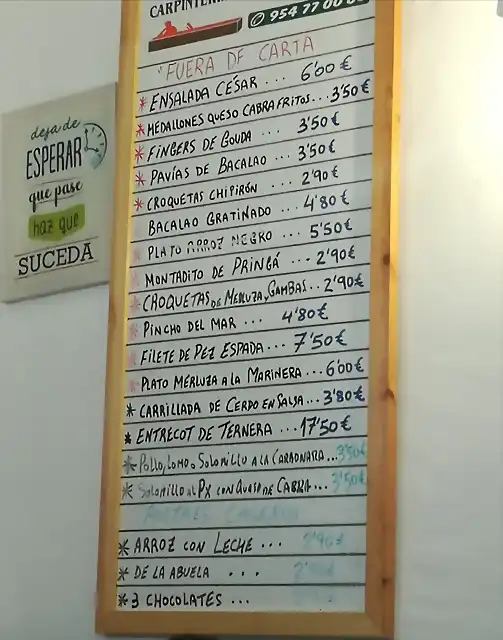 CARPINTERÍ
954 77 00
"FUERA DE CARTA
* ENSALADA CÉSAR ... 6'00 €
* MEDALLONES QUESO CABRA FRITOS... 3'50€
* FINGERS DE GOUDA ... 3'50€
* PAVÍAS DE BACALAO ... 3'50€
* CROQUETAS CHIPIRÓN ... 2'90€
BACALAO GRATINADO ... 4'80€
PLATO ARROZ NEGRO ... 5'50€
MONTADITO DE PRINGÁ ... 2'90€
* CROQUETAS DE MERLUZA, GAMBAS.. 2'90€
* PINCHO DEL MAR ... 4'80€
* FILETE DE PEZ ESPADA... 7'50€
* PLATO MERLUZA A LA MARINERA ... 6'00€
* CARRILLADA DE CERDO EN SALSA ... 3'80€
* ENTRECOT DE TERNERA ... 17'50€
* POLLO, LOMO o SOLOMILLO A LA CARBONARA ... 3'50€
* SOLOMILLO AL PX CON QUESO DE CABRA... 3'50€
POSTRES CASEROS
* ARROZ CON LECHE ... 2'90€
* DE LA ABUELA ...
* 3 CHOCOLATES ...
deja de
ESPERAR
que pase
haz que
SUCEDA